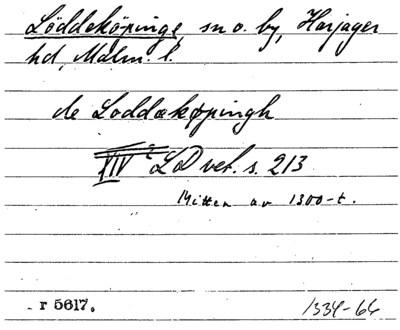 Löddeköpinge, sn o. by, Harjager
hd, Malm. l.
de Loddækøpingh
XIV 2 LD vet. s. 213
Mitten av 1300-t.
r 5617.
1334-64